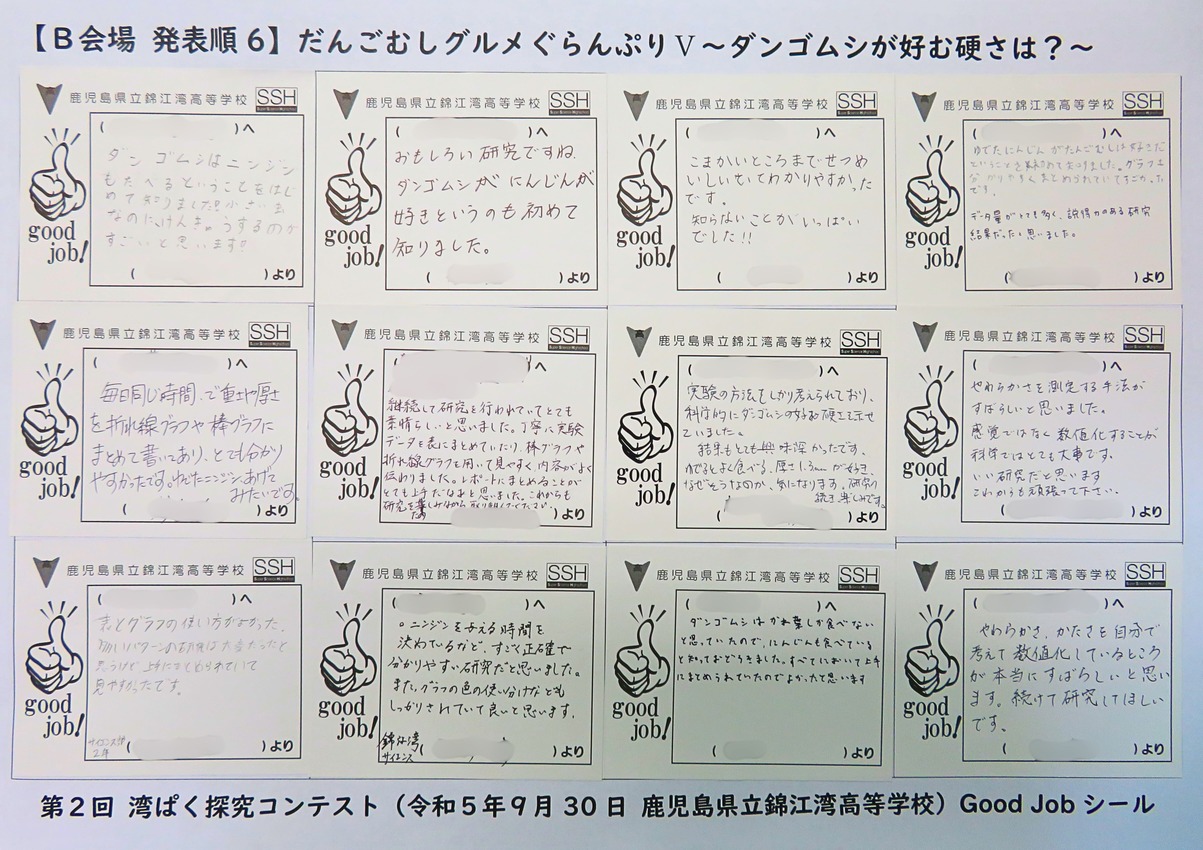 【B会場 発表順6】だんごむしグルメぐらんぷりⅤ～ダンゴムシが好む硬さは？～
鹿児島県立錦江湾高等学校 SSH
( )へ
ダンゴムシはニンジン
もたべるということをはじ
めて知りました!!小さい虫
なのに、けんきゅうするのが
すごいと思います!!
( )より
good
job!
鹿児島県立錦江湾高等学校 SSH
( )へ
おもしろい研究ですね。
ダンゴムシがにんじんが
好きというのも初めて
知りました。
( )より
good
job!
鹿児島県立錦江湾高等学校 SSH
( )へ
こまかいところまでせつめ
いしいてわかりやすかった
です。
知らないことがいっぱい
でした!!
( )より
good
job!
鹿児島県立錦江湾高等学校 SSH
( )へ
ゆでたにんじんがだんごむしは好きだ
ということを
分かりやすくまとめられていてすごかった
です。
データ量がとても多く、説得力のある研究
結果だったと思いました。
( )より
good
job!
鹿児島県立錦江湾高等学校 SSH
( )へ
毎日同じ時間、で重さや厚さ
を折れ線グラフや棒グラフに
まとめて書いてあり、とても分かり
やすかったです。ゆでたニンジンあげて
みたいです。
( )より
good
job!
鹿児島県立錦江湾高等学校 SSH
( )へ
継続して研究を行われていてとても
素晴らしいと思いました。丁寧に実験
データを表にまとめていたり、棒グラフや
折れ線グラフを用いて見やすく、内容がよく
伝わりました。レポートにまとめることが
とても上手だなぁと思いました。これからも
研究を楽しみながら
( )より
good
job!
鹿児島県立錦江湾高等学校 SSH
( )へ
実験の方法をしっかり考えられており、
科学的にダンゴムシの好む硬さを示せ
ていました。
結果もとても興味深かったです。
ゆでるとよく食べる、厚さ1.3mmが好き、
なぜそうなのか、気になります。研究の
続き楽しみです。
( )より
good
job!
鹿児島県立錦江湾高等学校 SSH
( )へ
やわらかさを測定する手法が
すばらしいと思いました。
感覚ではなく数値化することが
科学ではとても大事です。
いい研究だと思います
これからも頑張って下さい。
( )より
good
job!
鹿児島県立錦江湾高等学校 SSH
( )へ
表とグラフの使い方がよかった。
多いパターンの研究は大変だったと
思うけど上手にまとめられていて
見やすかったです。
サイエンス部
2年
( )より
good
job!
鹿児島県立錦江湾高等学校 SSH
( )へ
。ニンジンを与える時間を
決めているなど、すごく正確で
分かりやすい研究だと思いました。
また、グラフの色の使い分けなども
しっかりされていて良いと思います。
錦江湾
サイエンス
( )より
good
job!
鹿児島県立錦江湾高等学校 SSH
( )へ
ダンゴムシはかれ葉しか食べない
と思っていたので、にんじんも食べている
と知っておどろきました。すべてにおいて上手
にまとめられていたのでよかったと思います
( )より
good
job!
鹿児島県立錦江湾高等学校 SSH
( )へ
やわらかさ、かたさを自分で
考えて数値化しているところ
が本当にすばらしいと思い
ます。続けて研究してほしい
です。
( )より
good
job!
第2回 湾ぱく探究コンテスト（令和5年9月30日 鹿児島県立錦江湾高等学校）Good Job シール